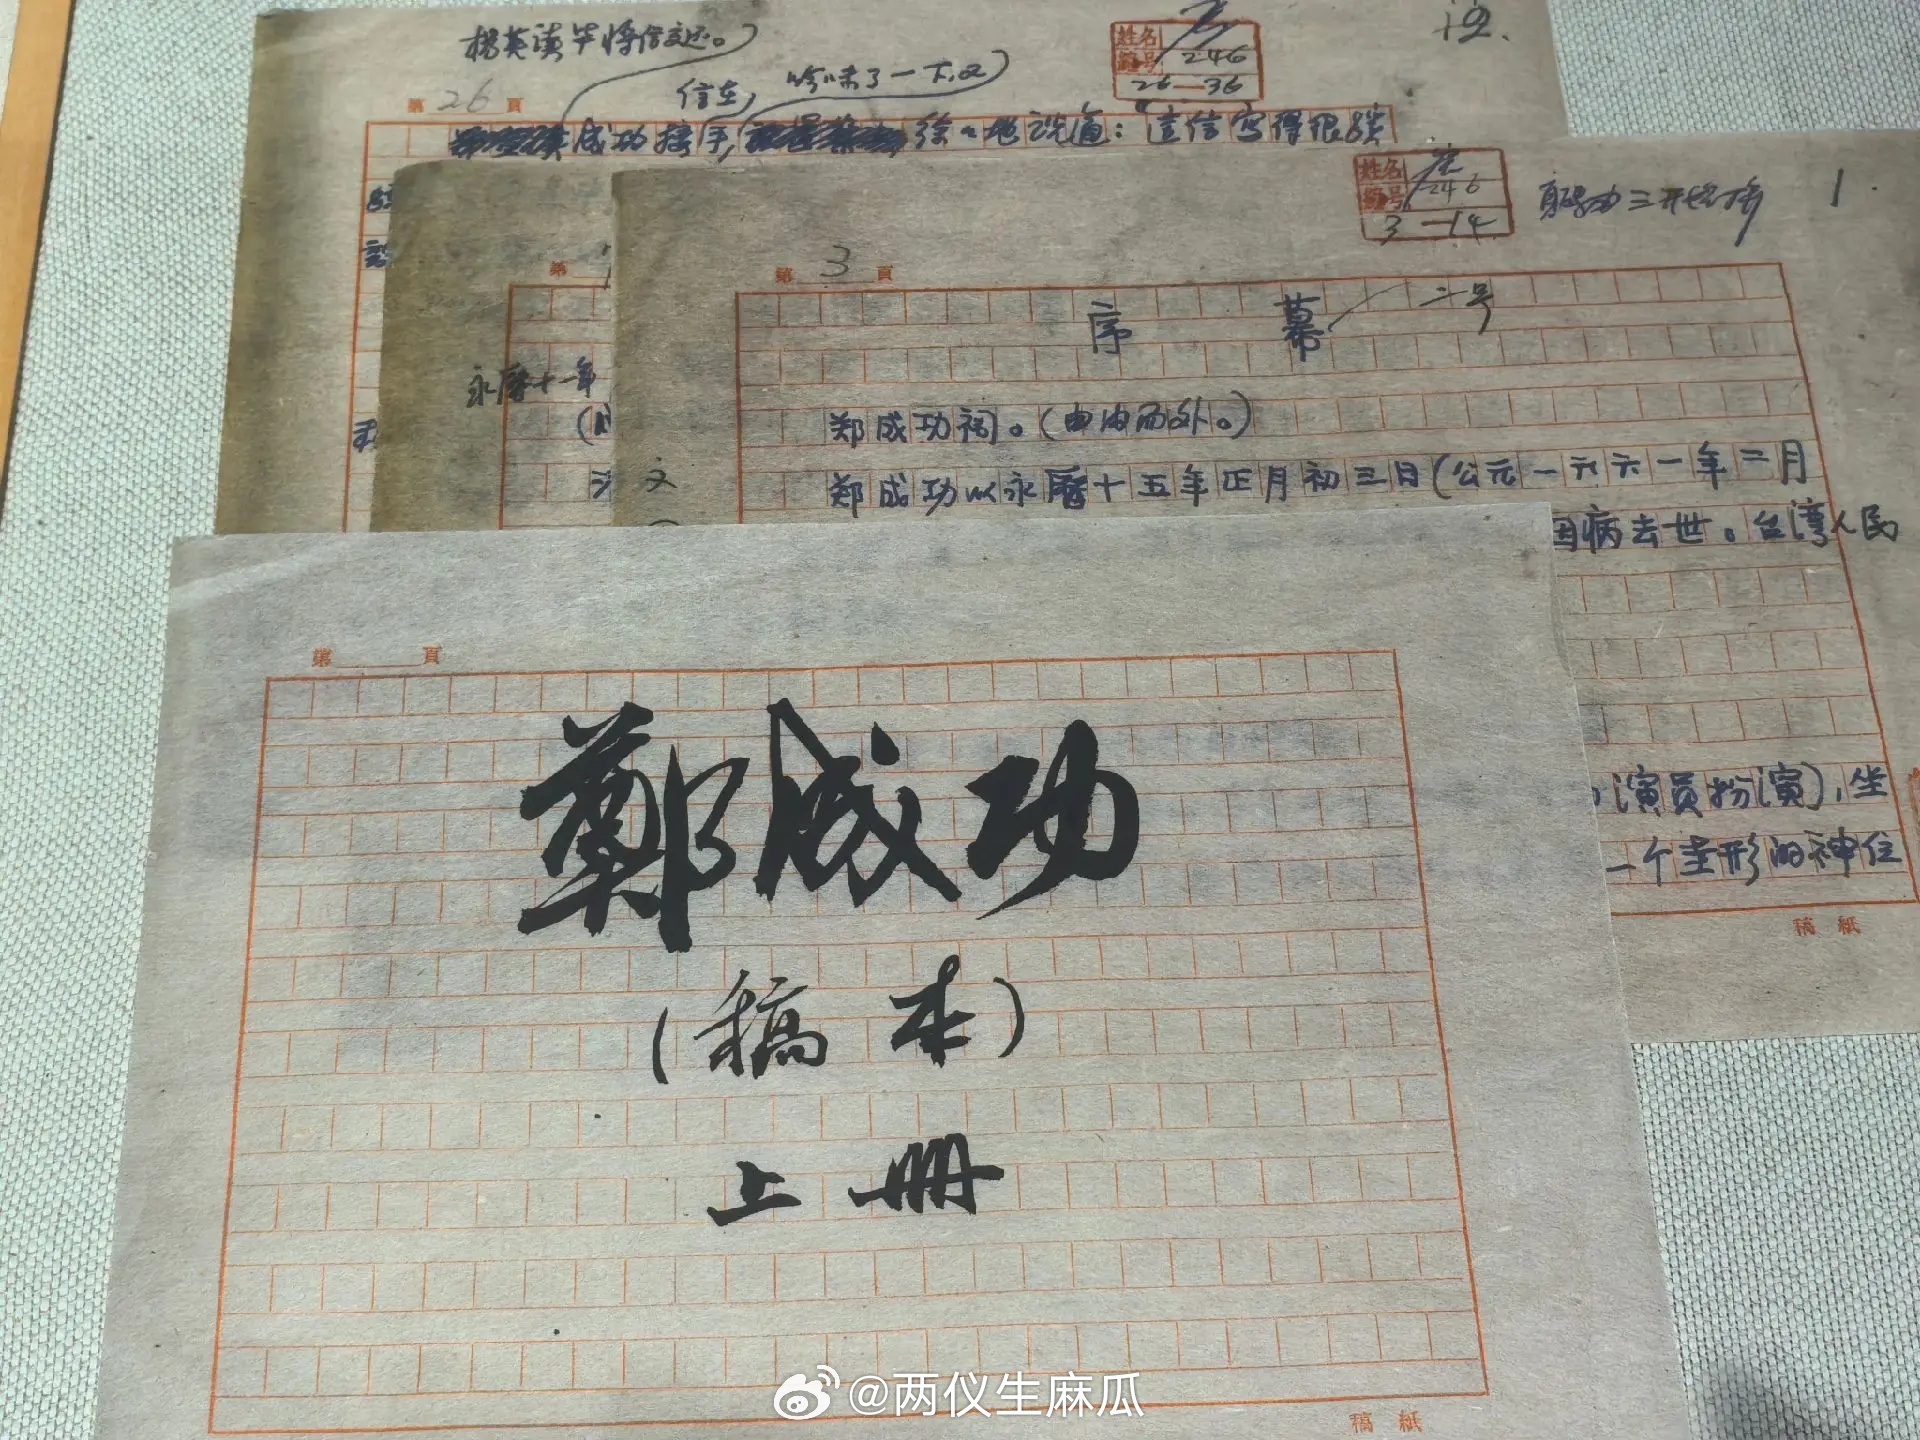 杨英读毕将信交还。
第 26 頁
信在
吟味了一下,又
姓名
编号 246
26—36
成功接手,
徐々地说道：“这信写得很
永历十一年
第
姓名
编号 246
3—14
1
第 3 頁
序 幕
二号
郑成功祠。(由内而外。)
郑成功以永历十五年正月初三日(公元一六六一年二月
因病去世。台湾人民
演员扮演),坐
一个圭形的神位
稿 紙
第 頁
鄭成功
(稿本)
上册
稿 紙
@两仪生麻瓜